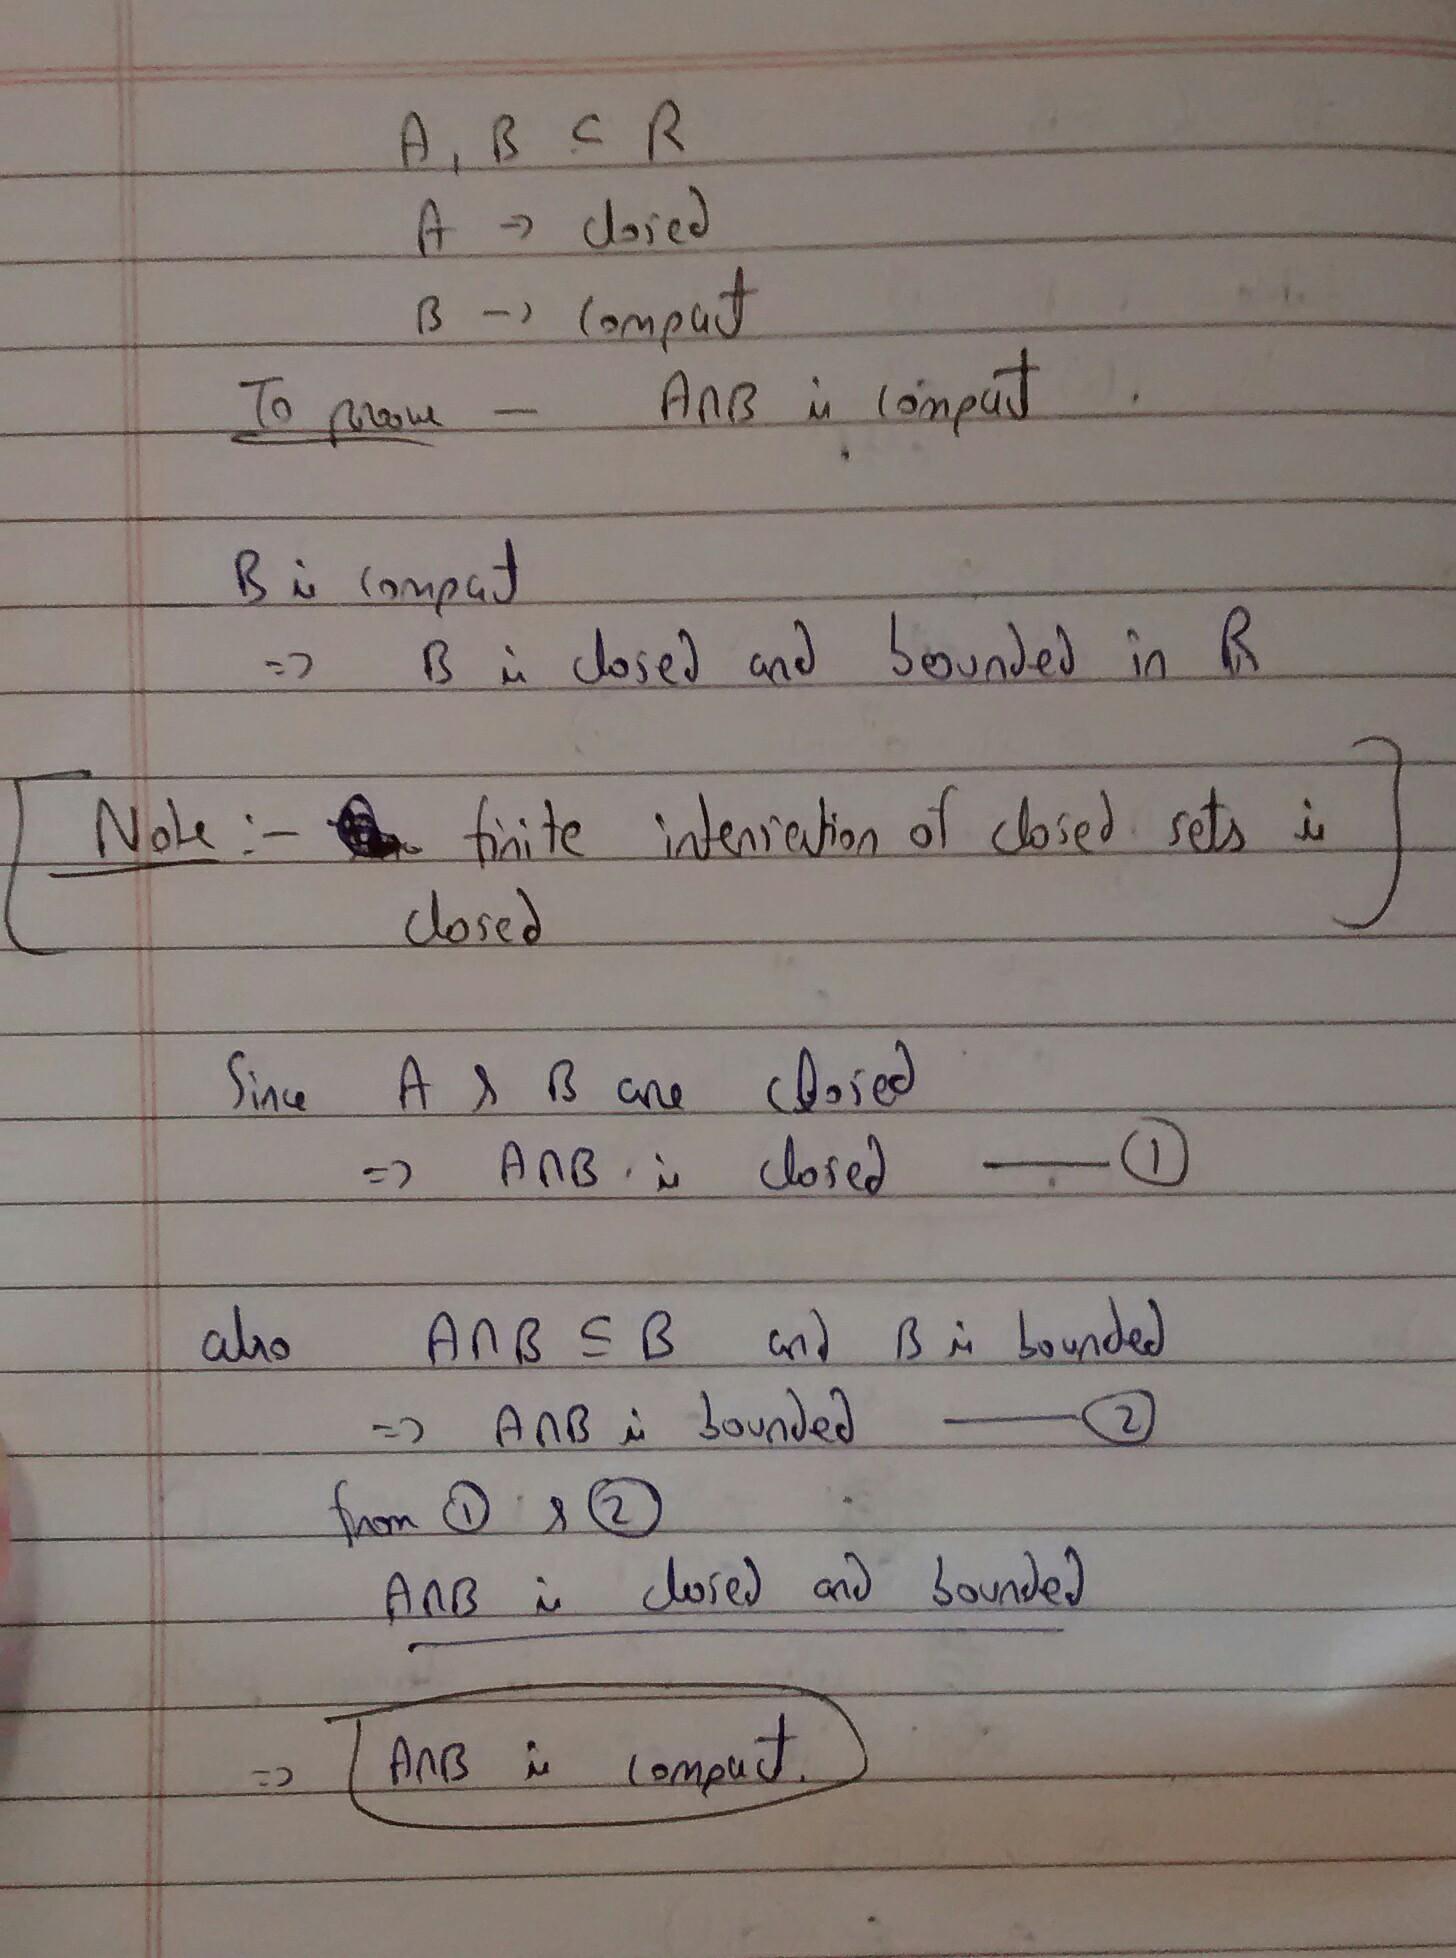 A, B ⊆ R
A → closed
B → compact
To prove — A∩B is compact.
B is compact
=> B is closed and bounded in R
[Note :- finite intersection of closed sets is
closed]
Since A & B are closed
=> A∩B is closed —— ①
also A∩B ⊆ B and B is bounded
=> A∩B is bounded —— ②
from ① & ②
A∩B is closed and bounded
=> A∩B is compact.